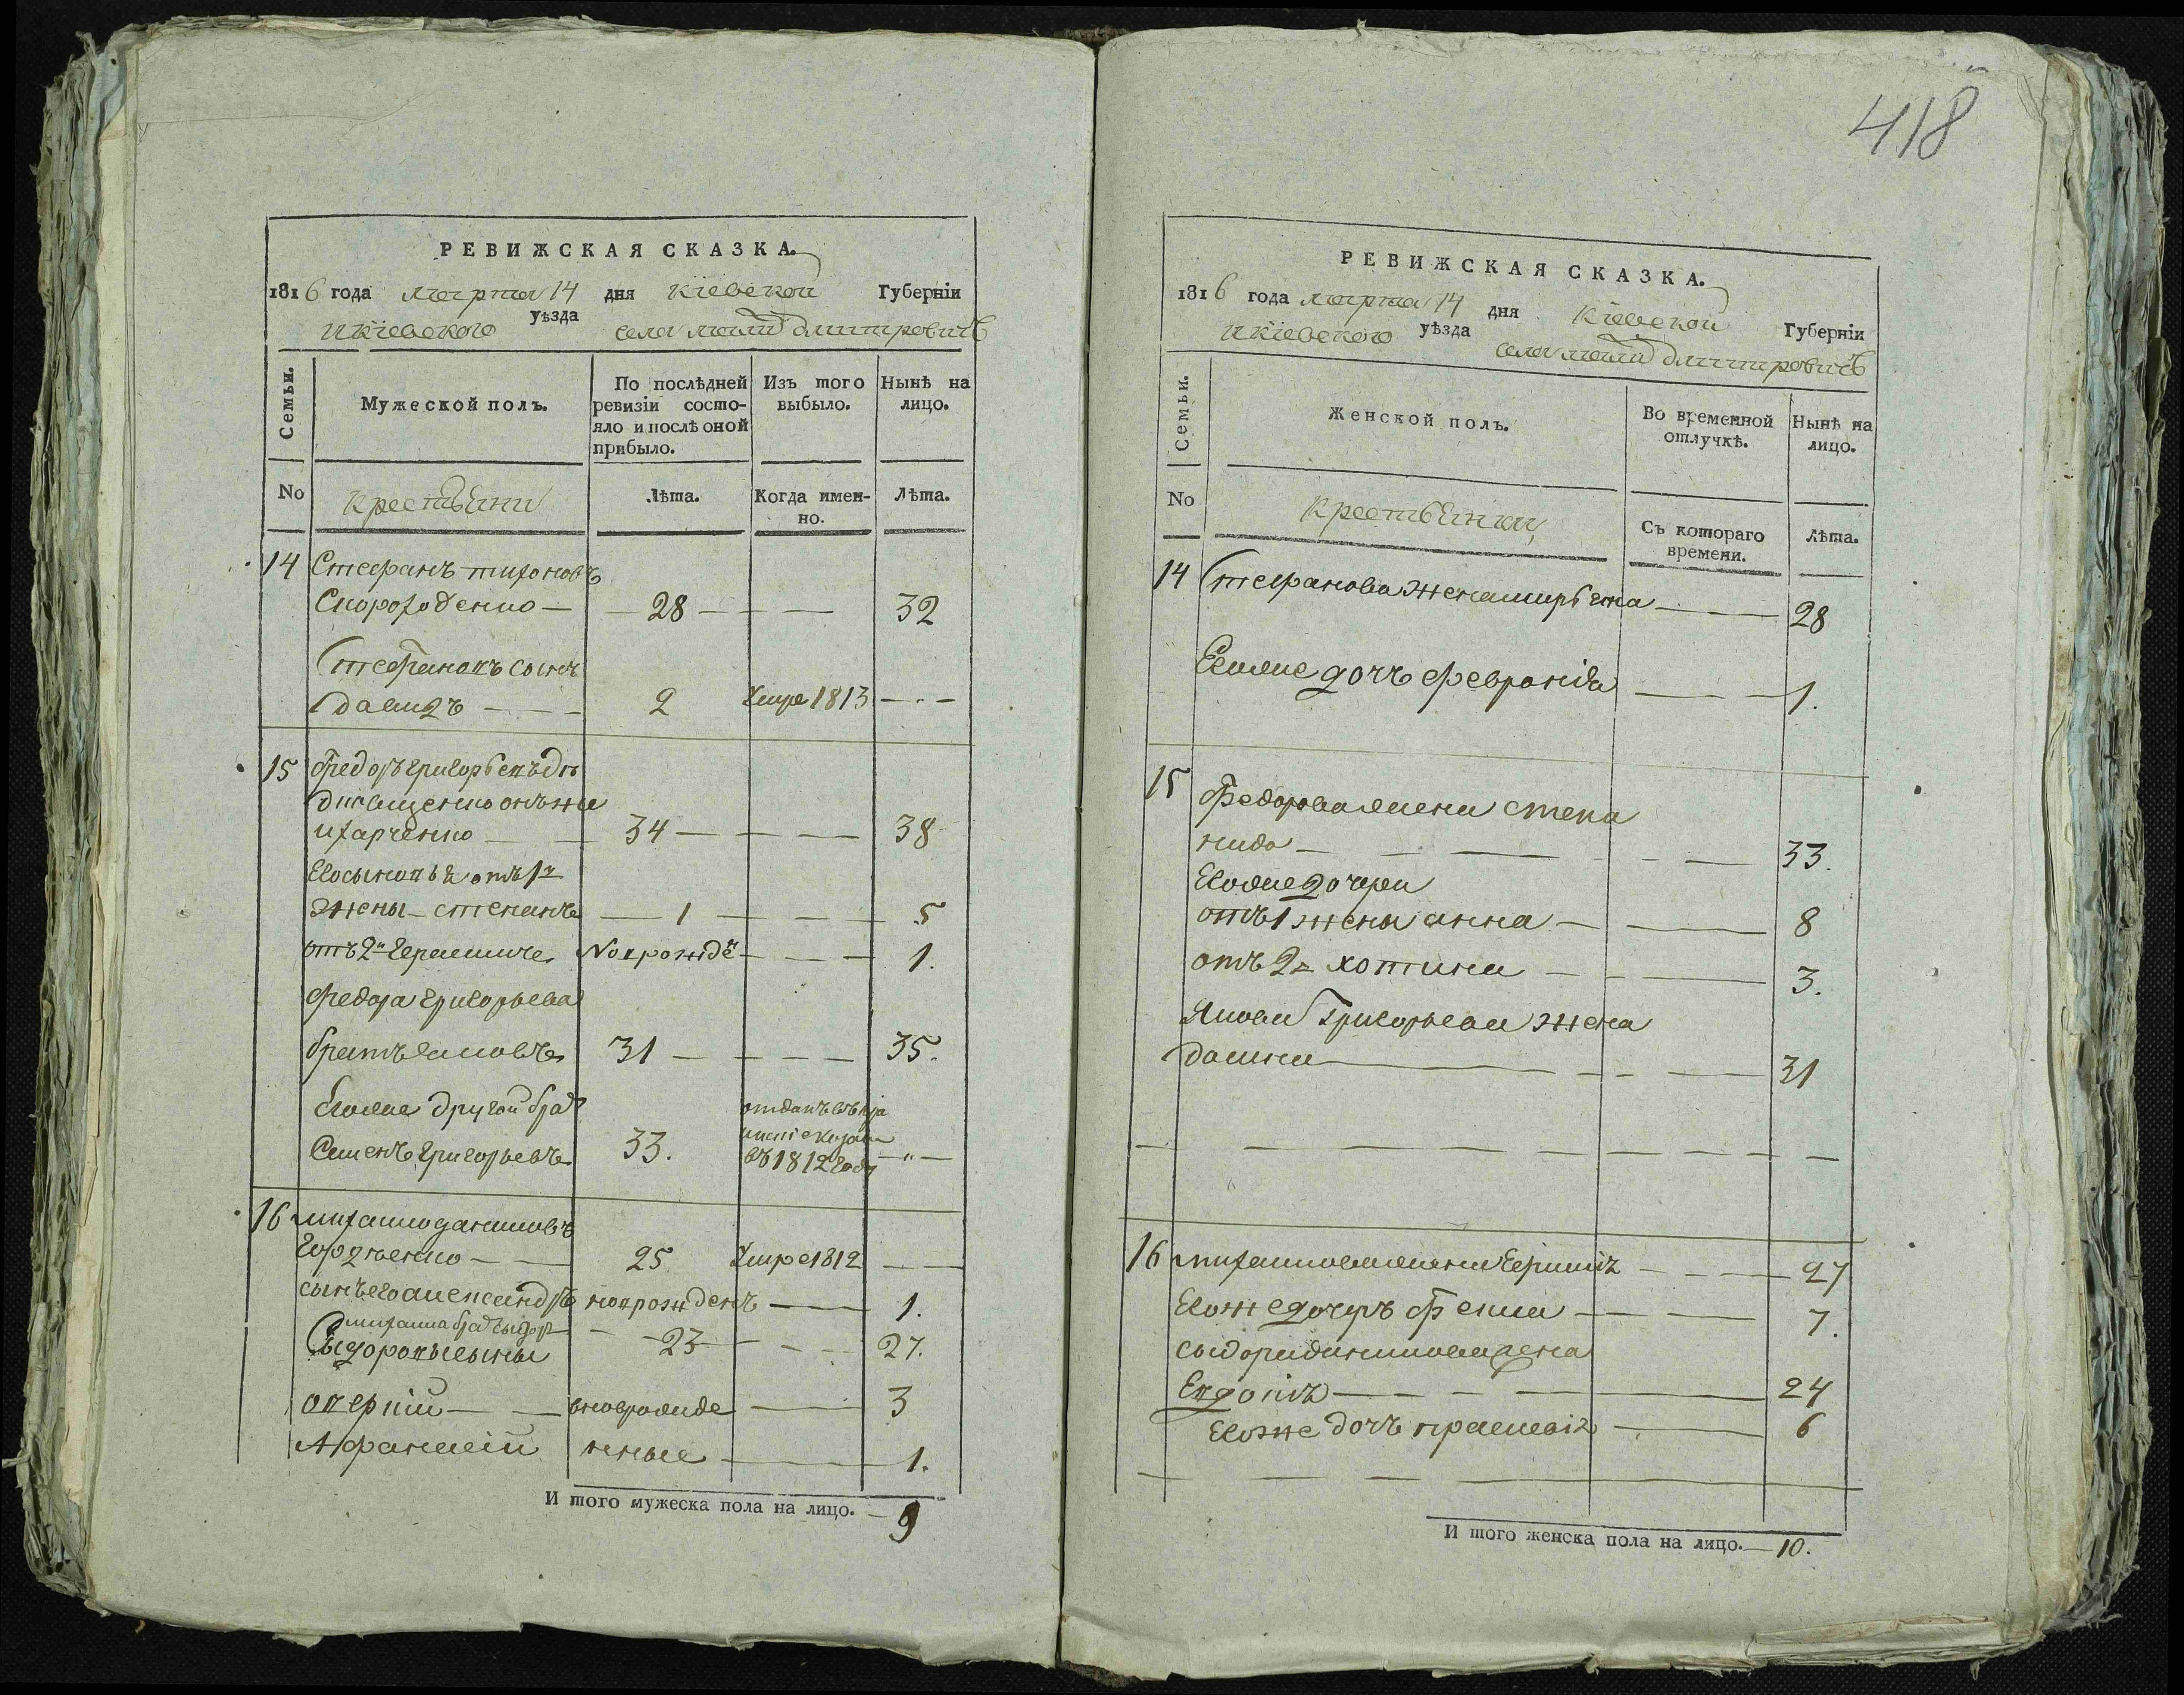 РЕВИЖСКАЯ СКАЗКА.
1816 года марта 14 дня Кіевской Губерніи
икіевского уѣзда села малы дмитровичъ
Семьи.
Мужеской полъ.
По послѣдней ревизіи состо-
яло и послѣ оной
прибыло.
Изъ того
выбыло.
Нынѣ на
лицо.
No
Лѣта.
Когда имен-
но.
Лѣта.
14 Стефанъ тихоновъ
Скороходенко — 28 — — 32
Стефановъ сынъ
2 Умре 1813 — —
15 Федоръ григорьевъ
ихарченко — 34 — — 38
Его сыновья отъ 1й
жены степанъ — 1 — — 5
отъ 2й герасимъ Новорожде — — 1.
Федора григорьева
братъ яковъ 31 — — 35.
Егоже другой бра
Семенъ григорьевъ 33.
въ 1812 году — " —
16 михайло даниловъ
25 Умре 1812 — —
сынъ его александръ новорожденъ — 1.
михайла бра сыдор — 23 — 27.
Сыдоровы сыны
оверкій — новорожде — 3
Афанасій нные — 1.
И того мужеска пола на лицо. — 9
418
РЕВИЖСКАЯ СКАЗКА.
1816 года марта 14 дня Кіевской Губерніи
икіевского уѣзда села малы дмитровичъ
Семьи.
Женской полъ.
Во временной
отлучкѣ.
Нынѣ на
лицо.
No
Съ котораго
времени.
Лѣта.
14 Стефанова жена — 28
Егоже дочъ февронія — 1.
15 Федорова жена степа
нида — 33.
Егоже дочери
отъ 1 жены анна — 8
отъ 2й хотина — 3.
Якова Григорьева жена
— 31
16 михайлова жена — 27
Егоже дочеръ — 7.
сыдора данилова жена
Евдокія — 24
Егоже дочъ прасковія — 6
И того женска пола на лицо. — 10.